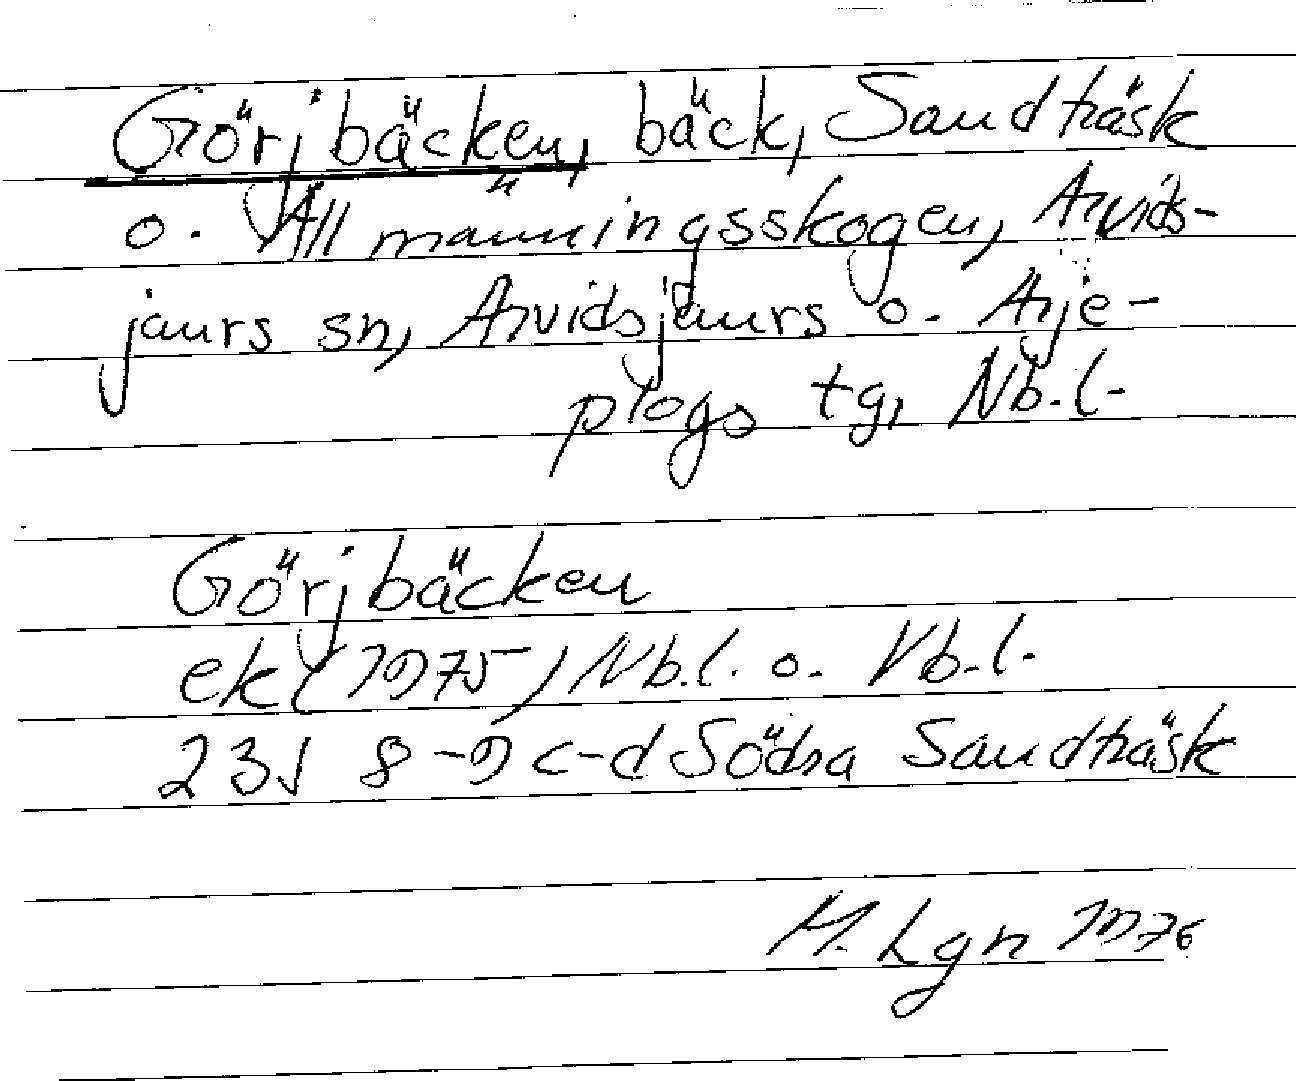 Görjbäcken, bäck, Sandträsk
o. Allmänningsskogen, Arvids-
jaurs sn, Arvidsjaurs o. Arje-
plogs tg, Nb.l.
Görjbäcken
ek (1975) Nb.l. o. Vb.l.
23J 8-9 c-d Södra Sandträsk
H. Lgn 1976